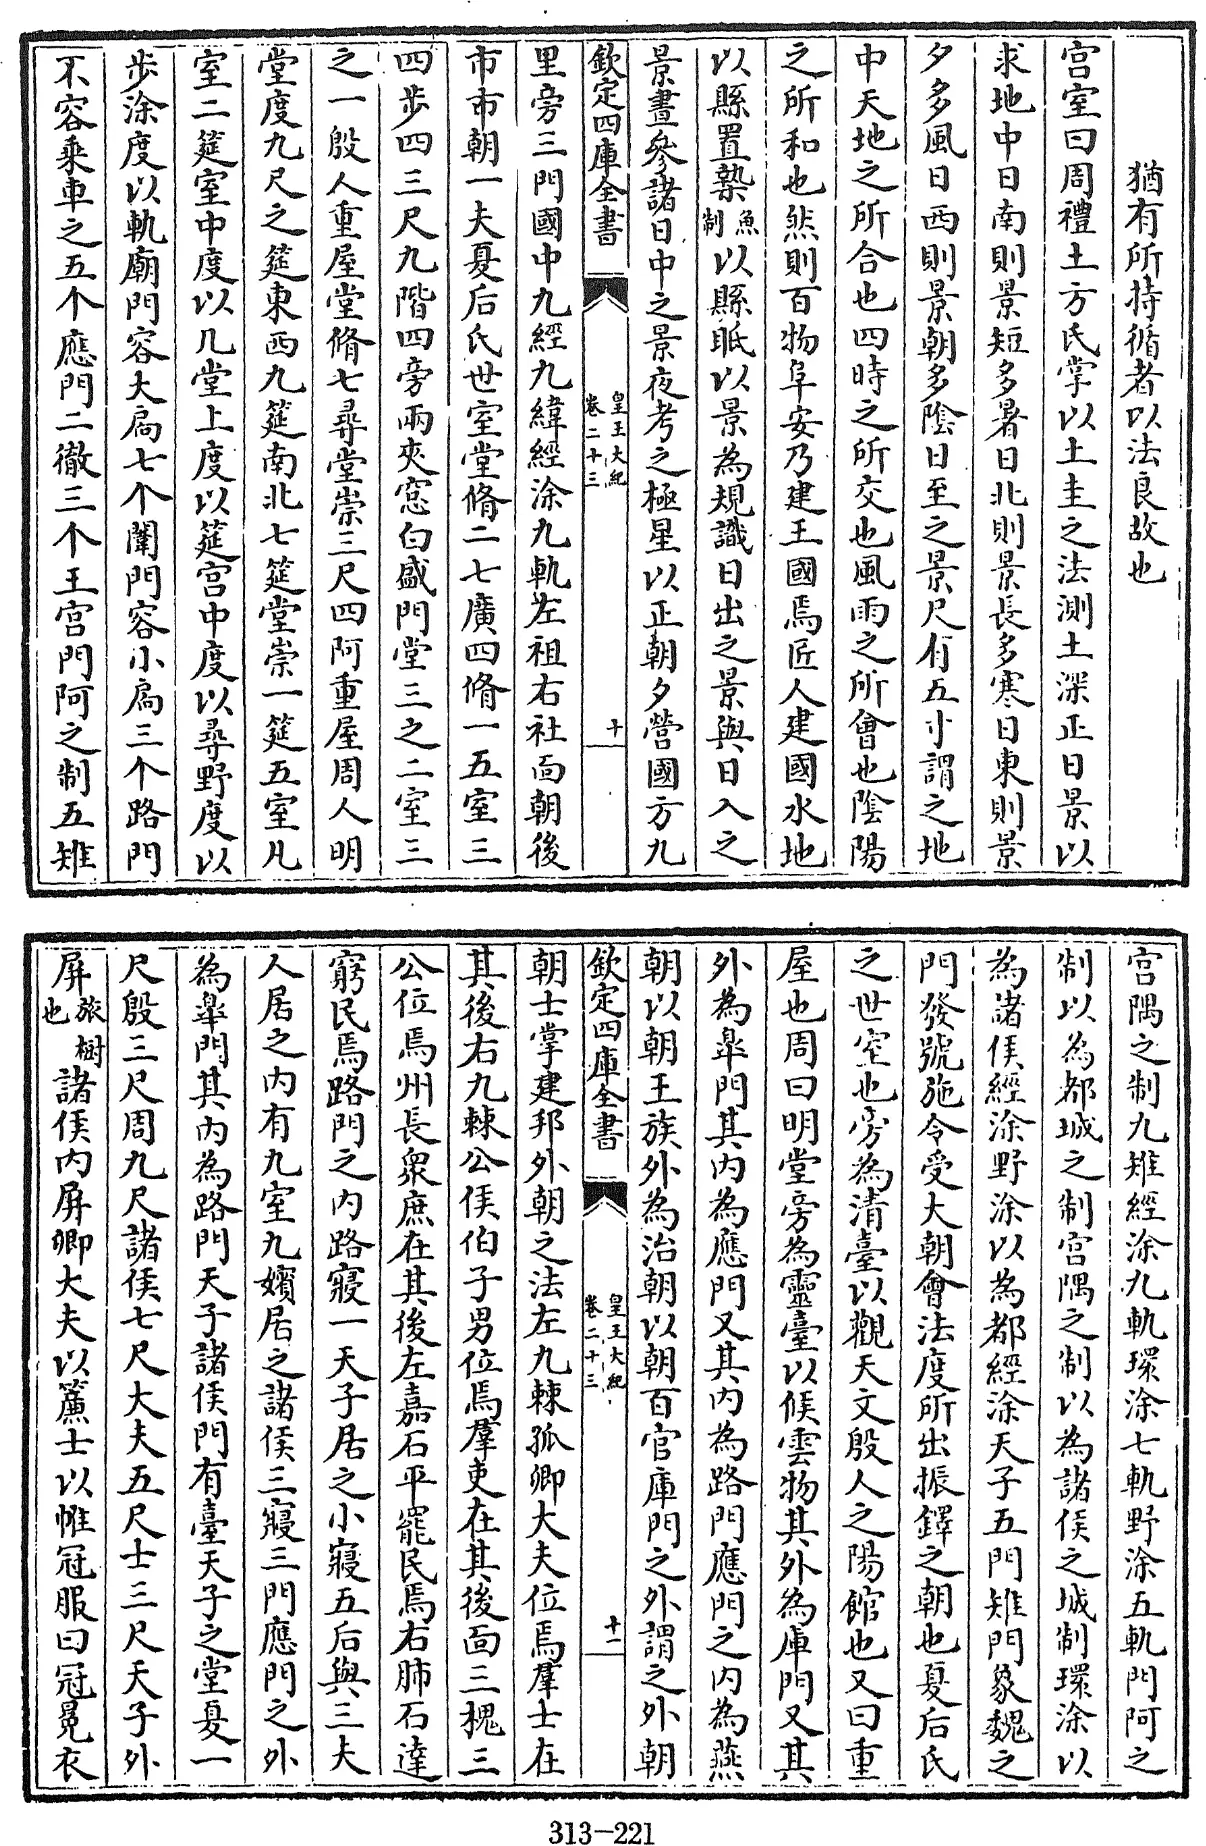 猶有所持循者以法良故也
宫室曰周禮土方氏掌以土圭之法測土深正日景以
求地中日南則景短多暑日北則景長多寒日東則景
夕多風日西則景朝多陰日至之景尺有五寸謂之地
中天地之所合也四時之所交也風雨之所會也陰陽
之所和也然則百物阜安乃建王國焉匠人建國水地
以縣置槷魚制以縣眡以景為規識日出之景與日入之
景晝參諸日中之景夜考之極星以正朝夕營國方九
欽定四庫全書 皇王大紀 卷二十三 十
里旁三門國中九經九緯經涂九軌左祖右社面朝後
市市朝一夫夏后氏世室堂脩二七廣四脩一五室三
四步四三尺九階四旁兩夾窓白盛門堂三之二室三
之一殷人重屋堂脩七尋堂崇三尺四阿重屋周人明
堂度九尺之筵東西九筵南北七筵堂崇一筵五室凡
室二筵室中度以几堂上度以筵宫中度以尋野度以
步涂度以軌廟門容大扃七个闈門容小扃三个路門
不容乗車之五个應門二徹三个王宫門阿之制五雉
宫隅之制九雉經涂九軌環涂七軌野涂五軌門阿之
制以為都城之制宫隅之制以為諸侯之城制環涂以
為諸侯經涂野涂以為都經涂天子五門雉門象魏之
門發號施令受大朝會法度所出振鐸之朝也夏后氏
之世室也旁為清臺以觀天文殷人之陽館也又曰重
屋也周曰明堂旁為靈臺以候雲物其外為庫門又其
外為臯門其内為應門又其内為路門應門之内為燕
朝以朝王族外為治朝以朝百官庫門之外謂之外朝
欽定四庫全書 皇王大紀 卷二十三 十一
朝士掌建邦外朝之法左九棘孤卿大夫位焉羣士在
其後右九棘公侯伯子男位焉羣吏在其後面三槐三
公位焉州長衆庶在其後左嘉石平罷民焉右肺石達
窮民焉路門之内路寢一天子居之小寢五后與三夫
人居之内有九室九嬪居之諸侯三寢三門應門之外
為臯門其内為路門天子諸侯門有臺天子之堂夏一
尺殷三尺周九尺諸侯七尺大夫五尺士三尺天子外
屏旅樹也諸侯内屏卿大夫以簾士以帷冠服曰冠冕衣
313-221